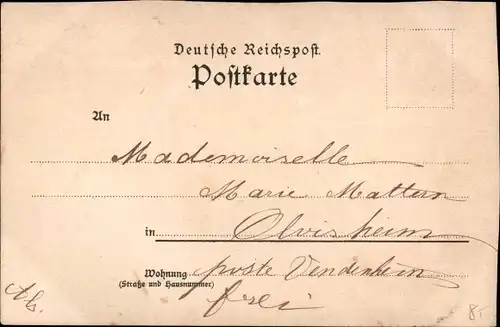 Deutsche Reichspost.
Postkarte
An
Mademoiselle
Marie Mattern
in Olvisheim
Wohnung poste Vendenheim
(Straße und Hausnummer)
frei
8.-